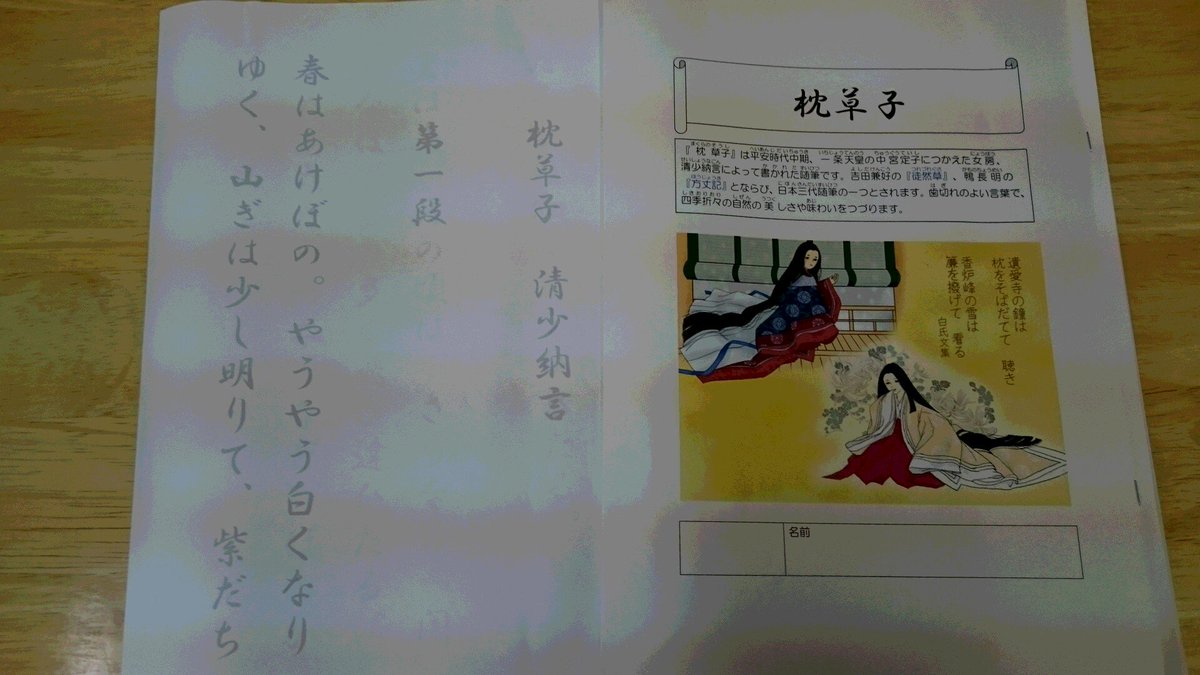 枕草子
『枕草子』は平安時代中期、一条天皇の中宮定子につかえた女房、
清少納言によって書かれた随筆です。吉田兼好の『徒然草』、鴨長明の
『方丈記』とならび、日本三代随筆の一つとされます。歯切れのよい言葉で、
四季折々の自然の美しさや味わいをつづります。
遺愛寺の鐘は
枕をそばだてて 聴き
香炉峰の雪は
簾を撥げて 看る
白氏文集
名前
枕草子 清少納言
第一段の
春はあけぼの。やうやう白くなり
ゆく、山ぎは少し明りて、紫だち